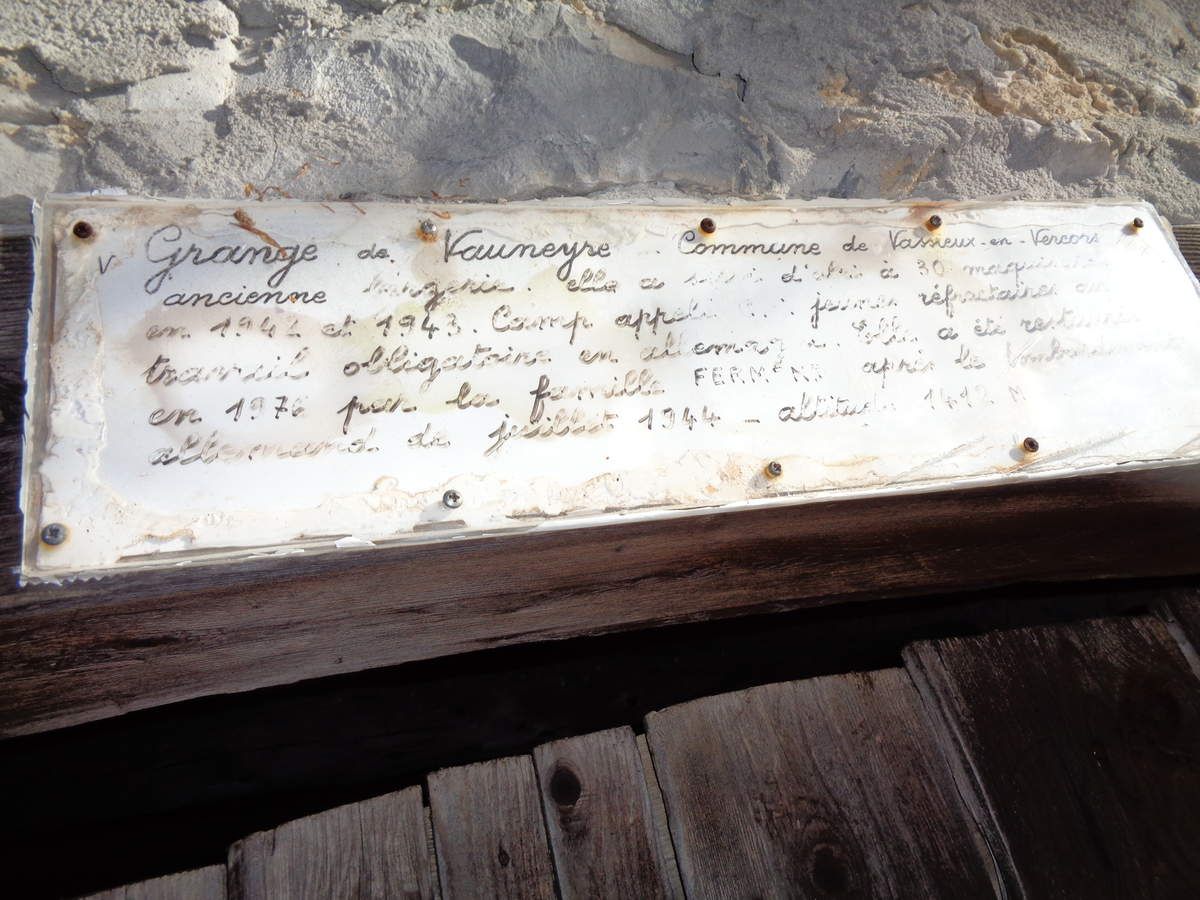 Grange de Vauneyre Commune de Vassieux-en-Vercors
ancienne bergerie. elle a servi d'abri à 30 maquisards
en 1942 et 1943. Camp appelé jeunes réfractaires au
travail obligatoire en allemagne. Elle a été restaurée
en 1976 par la famille FERMOND après le bombardement
allemand de juillet 1944 - altitude 1412 M